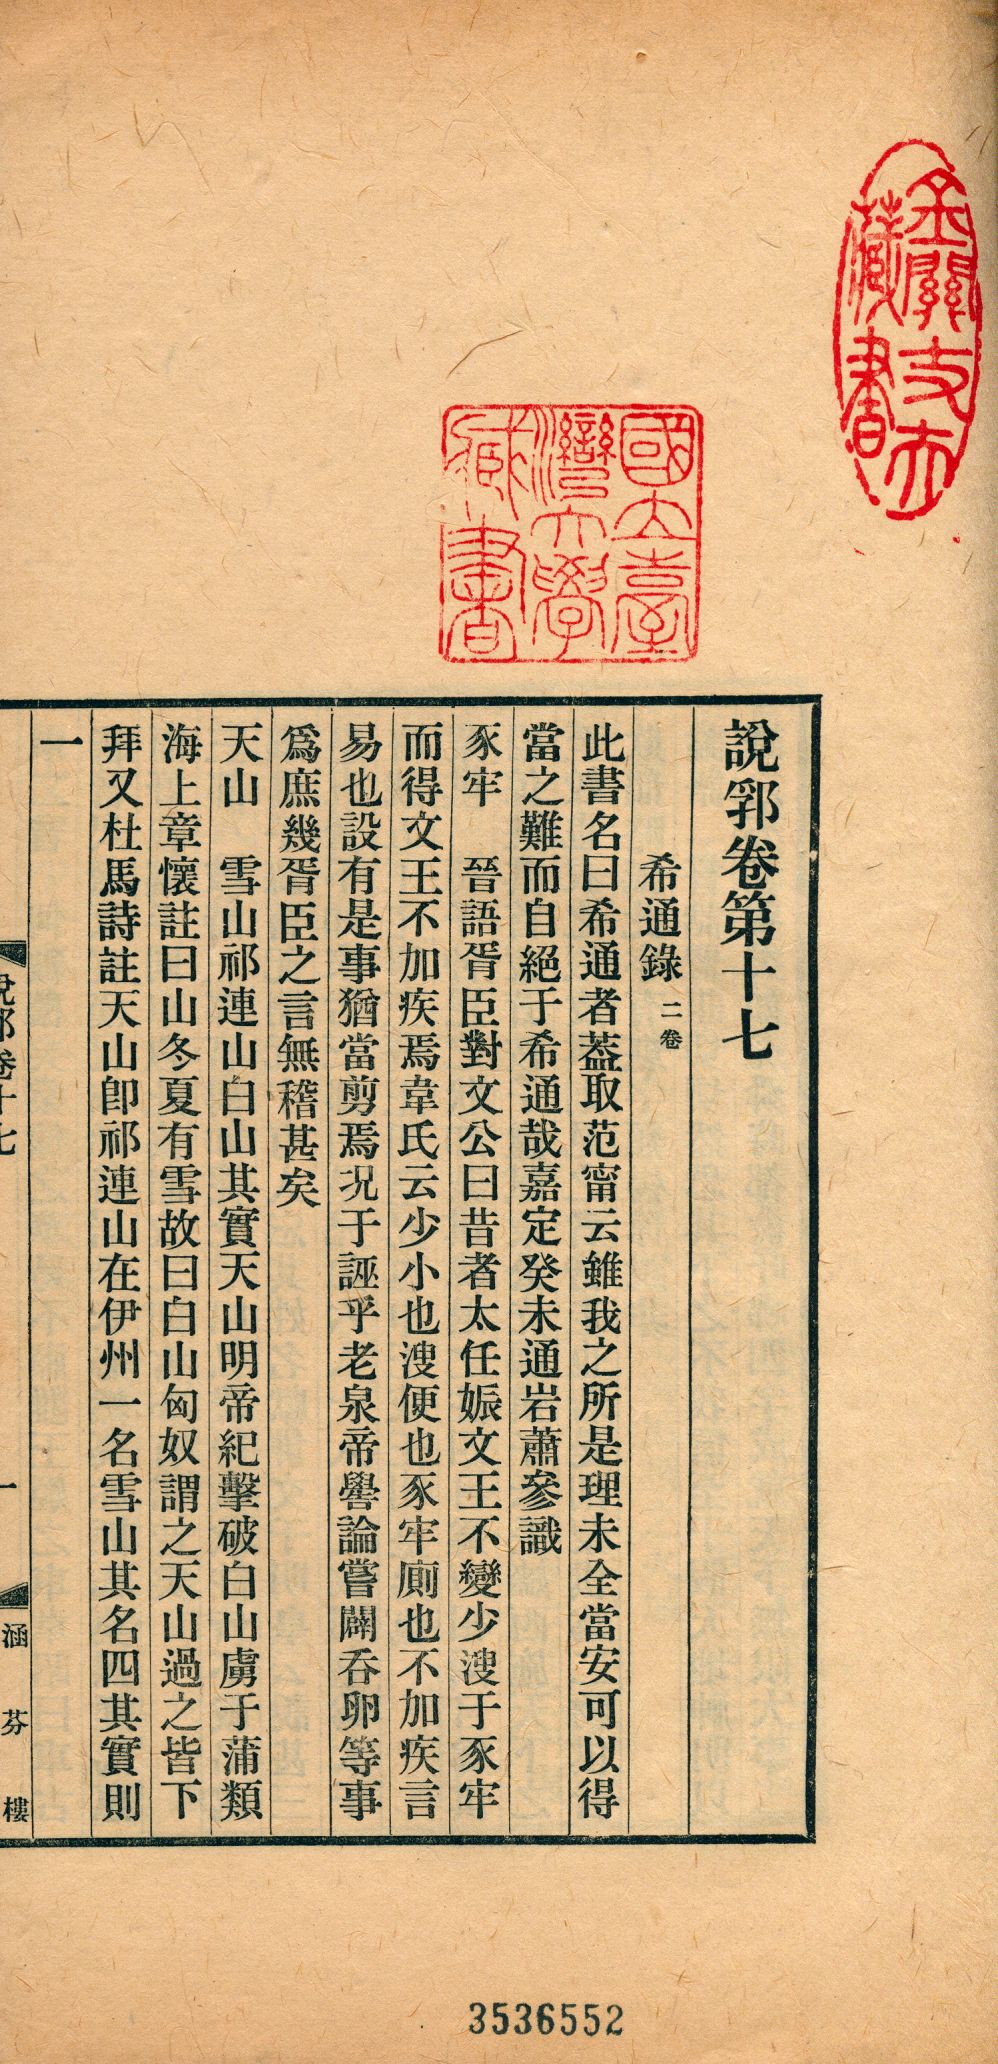 說郛卷第十七
希通錄 二卷
此書名曰希通者葢取范甯云雖我之所是理未全當安可以得
當之難而自絕于希通哉嘉定癸未通岩蕭參識
豕牢 晉語胥臣對文公曰昔者太任娠文王不變少溲于豕牢
而得文王不加疾焉韋氏云少小也溲便也豕牢廁也不加疾言
易也設有是事猶當剪焉況于誣乎老泉帝嚳論嘗闢吞卵等事
爲庶幾胥臣之言無稽甚矣
天山 雪山祁連山白山其實天山明帝紀擊破白山虜于蒲類
海上章懷註曰山冬夏有雪故曰白山匈奴謂之天山過之皆下
拜又杜馬詩註天山卽祁連山在伊州一名雪山其名四其實則
一
說郛卷十七
一
涵芬樓
國立臺
灣大學
藏書
藏書
3536552